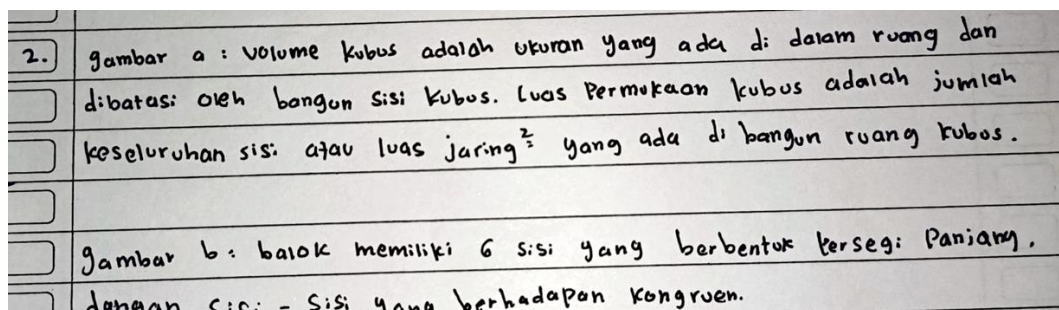 2. gambar a : volume kubus adalah ukuran yang ada di dalam ruang dan
dibatasi oleh bangun sisi kubus. Luas Permukaan kubus adalah jumlah
keseluruhan sisi atau luas jaring² yang ada di bangun ruang kubus.
gambar b : balok memiliki 6 sisi yang berbentuk Persegi Panjang.
dengan sisi - sisi yang berhadapan kongruen.